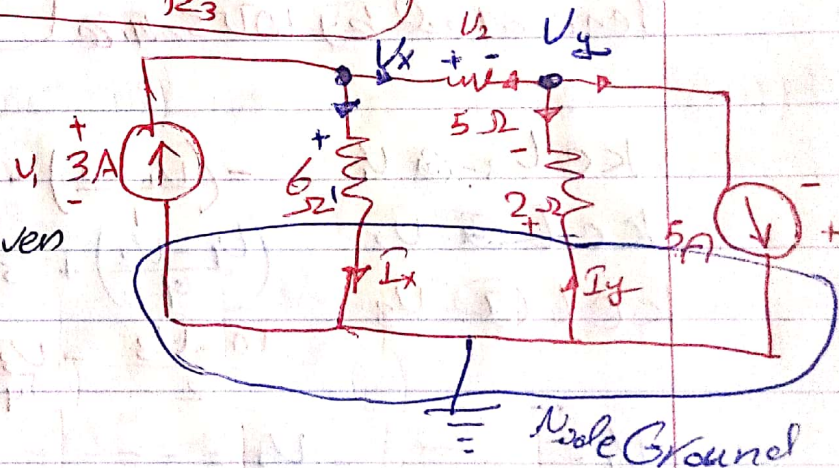 R3
V2
Vx + - Vy
+
V1 3A
-
+
6
Ω
5 Ω
-
2 Ω
+
-
5A
+
ven
Ix
Iy
Node Ground